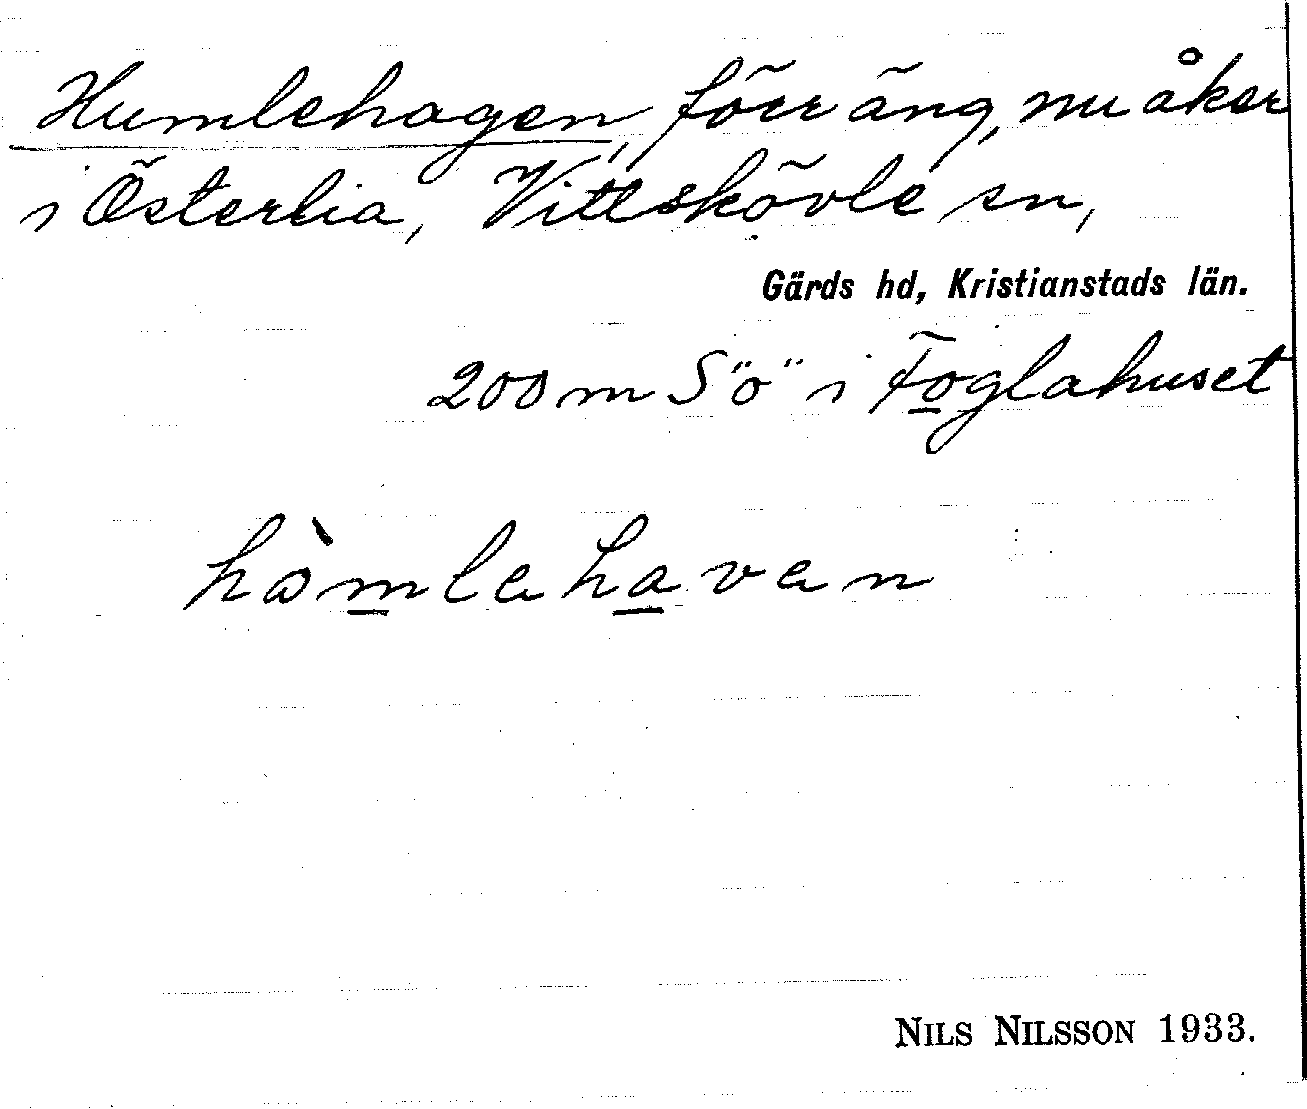 Humlehagen, förr äng, nu åker
i Österlia, Vittskövle sn,
Gärds hd, Kristianstads län.
200 m S"o" i Foglahuset
hòmlehaven
NILS NILSSON 1933.